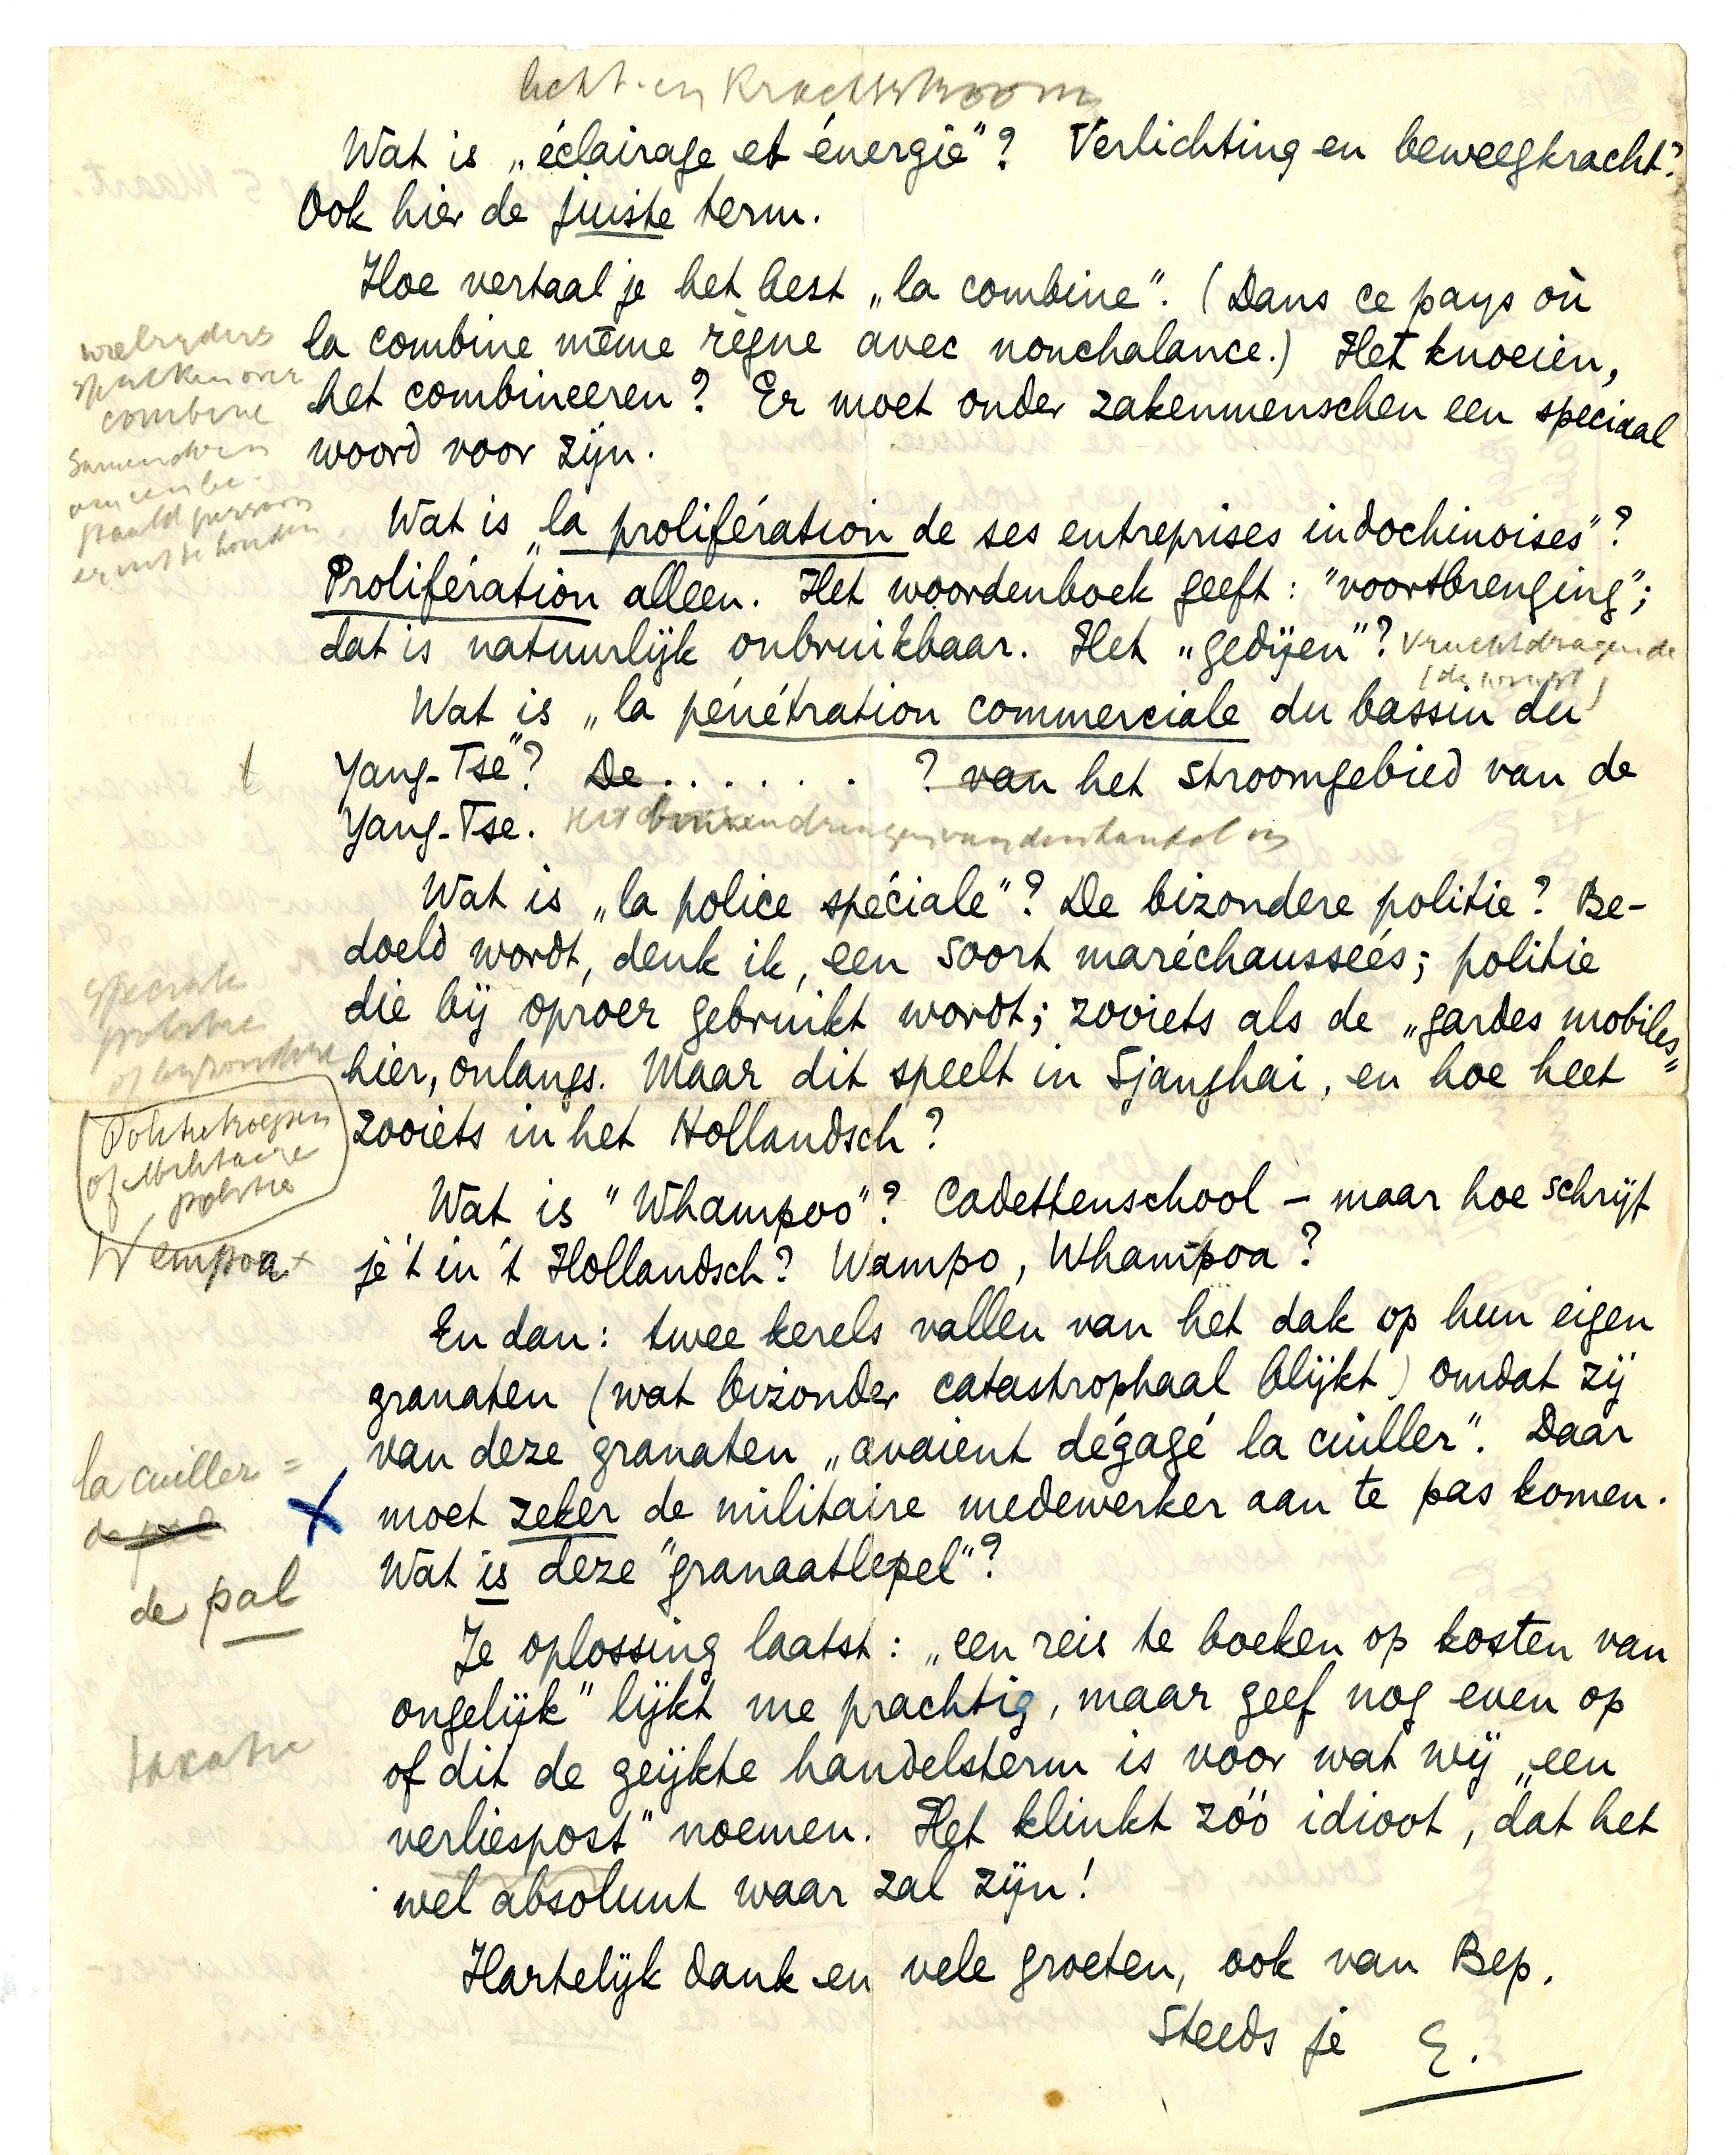 licht- en Krachtstroom
Wat is „éclairage et énergie"? Verlichting en beweegkracht?
Ook hier de juiste term.
Hoe vertaal je het best „la combine". (Dans ce pays où
la combine même règne avec nonchalance.) Het knoeien,
het combineeren? Er moet onder zakenmenschen een speciaal
woord voor zijn.
wielrijders
spreken over
combine
Samendoen
om een be-
paald persoon
er uit te houden
Wat is „la prolifération de ses entreprises indochinoises"?
Prolifération alleen. Het woordenboek geeft: "voortbrenging";
dat is natuurlijk onbruikbaar. Het „gedijen"? Vruchtdragende
Wat is „la pénétration commerciale du bassin du
Yang-Tsé"? De . . . . . . ? van het stroomgebied van de
t
Yang-Tse. Het binnendringen van den handel in
Wat is „la police spéciale"? De bizondere politie? Be-
doeld wordt, denk ik, een soort maréchausseés; politie
die bij oproer gebruikt wordt; zooiets als de „gardes mobiles"
hier, onlangs. Maar dit speelt in Sjanghai, en hoe heet
zooiets in het Hollandsch?
speciale
politie
of byzondere
Politietroepen
of Militaire
politie
Wat is "Whampoo"? Cadettenschool – maar hoe schrijf
je 't in 't Hollandsch? Wampo, Whampoa?
Wempoa x
En dan: twee kerels vallen van het dak op hun eigen
granaten (wat bizonder catastrophaal blijkt) omdat zij
van deze granaten „avaient dégagé la cuiller". Daar
moet zeker de militaire medewerker aan te pas komen.
Wat is deze "granaatlepel"?
la cuiller =
de pal
X
de pal
Je oplossing laatst: „een reis te boeken op kosten van
ongelijk" lijkt me prachtig, maar geef nog even op
of dit de geijkte handelsterm is voor wat wij „een
verliespost" noemen. Het klinkt zóó idioot, dat het
wel absoluut waar zal zijn!
Hartelijk dank en vele groeten, ook van Bep.
Steeds je E.